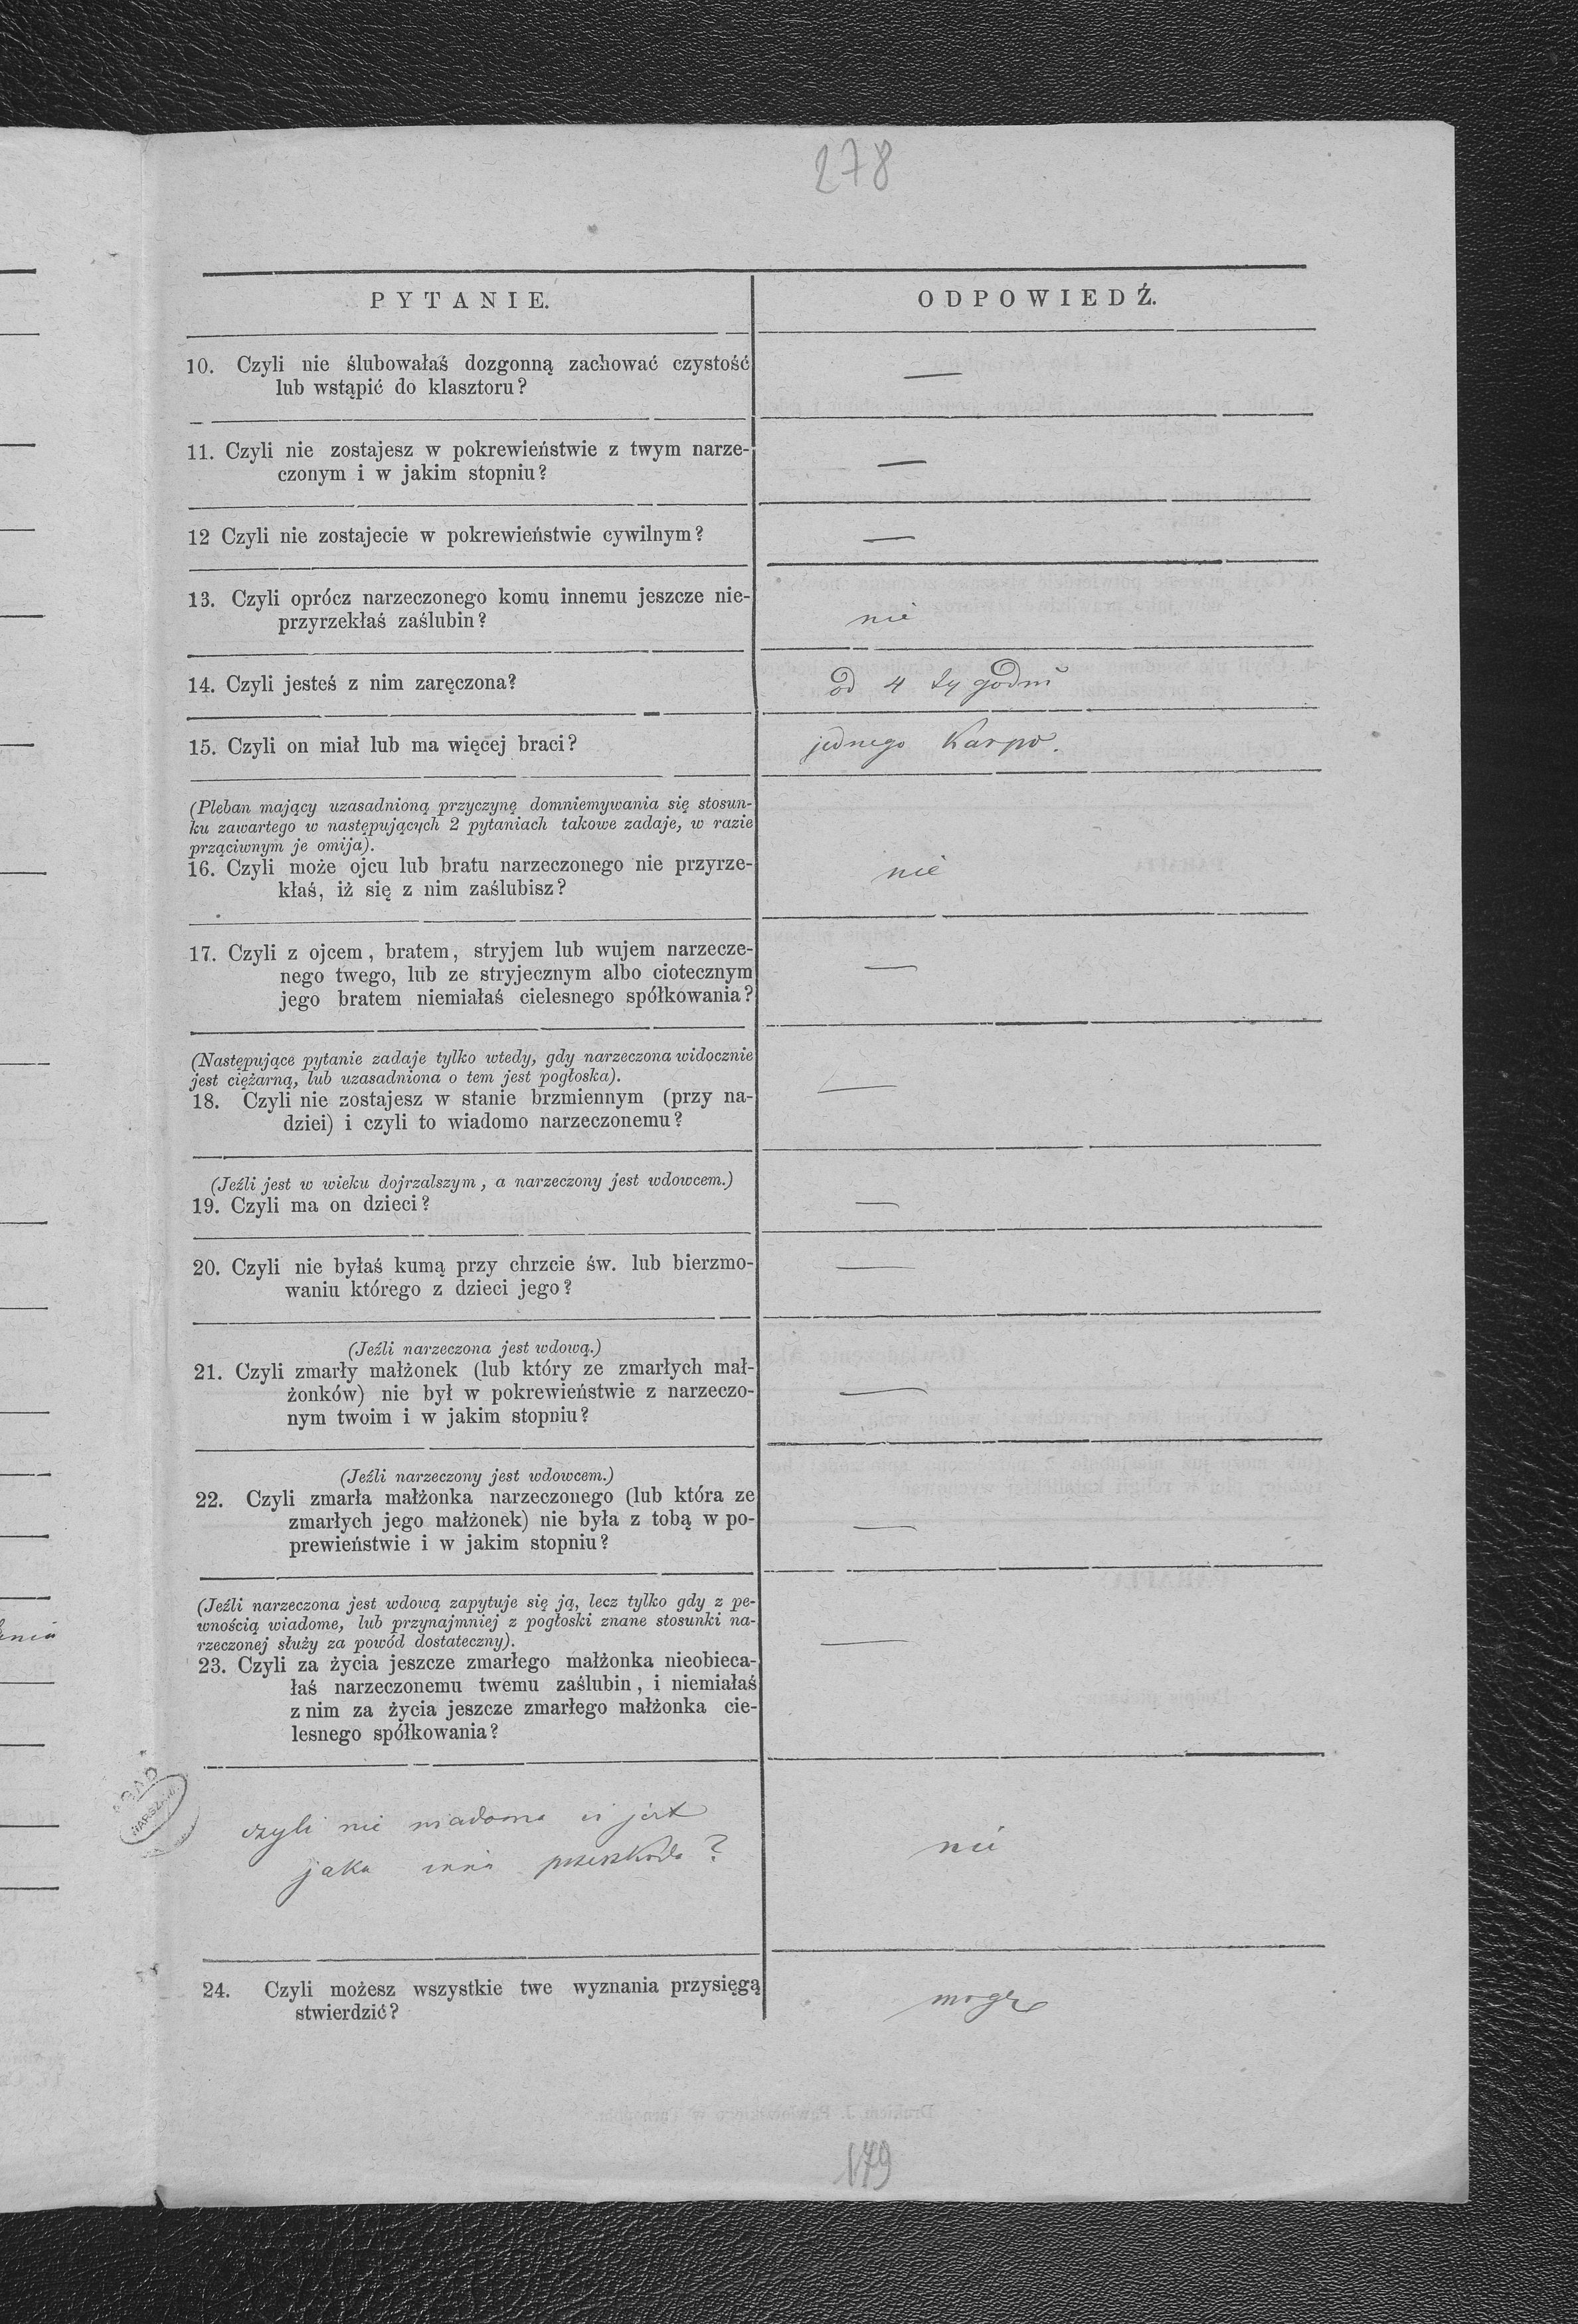 278
PYTANIE.
ODPOWIEDŹ.
10. Czyli nie ślubowałaś dozgonną zachować czystość
lub wstąpić do klasztoru?
—
11. Czyli nie zostajesz w pokrewieństwie z twym narze-
czonym i w jakim stopniu?
—
12 Czyli nie zostajecie w pokrewieństwie cywilnym?
—
13. Czyli oprócz narzeczonego komu innemu jeszcze nie-
przyrzekłaś zaślubin?
nie
14. Czyli jesteś z nim zaręczona?
od 4 tygodni
15. Czyli on miał lub ma więcej braci?
jednego Karpo.
(Pleban mający uzasadnioną przyczynę domniemywania się stosun-
ku zawartego w następujących 2 pytaniach takowe zadaje, w razie
prząciwnym je omija).
16. Czyli może ojcu lub bratu narzeczonego nie przyrze-
kłaś, iż się z nim zaślubisz?
nie
17. Czyli z ojcem, bratem, stryjem lub wujem narzecze-
nego twego, lub ze stryjecznym albo ciotecznym
jego bratem niemiałaś cielesnego spółkowania?
—
(Następujące pytanie zadaje tylko wtedy, gdy narzeczona widocznie
jest ciężarną, lub uzasadniona o tem jest pogłoska).
18. Czyli nie zostajesz w stanie brzmiennym (przy na-
dziei) i czyli to wiadomo narzeczonemu?
—
(Jeźli jest w wieku dojrzalszym, a narzeczony jest wdowcem.)
19. Czyli ma on dzieci?
—
20. Czyli nie byłaś kumą przy chrzcie św. lub bierzmo-
waniu którego z dzieci jego?
—
(Jeźli narzeczona jest wdową.)
21. Czyli zmarły małżonek (lub który ze zmarłych mał-
żonków) nie był w pokrewieństwie z narzeczo-
nym twoim i w jakim stopniu?
—
(Jeźli narzeczony jest wdowcem.)
22. Czyli zmarła małżonka narzeczonego (lub która ze
zmarłych jego małżonek) nie była z tobą w po-
prewieństwie i w jakim stopniu?
—
(Jeźli narzeczona jest wdową zapytuje się ją, lecz tylko gdy z pe-
wnością wiadome, lub przynajmniej z pogłoski znane stosunki na-
rzeczonej służy za powód dostateczny).
23. Czyli za życia jeszcze zmarłego małżonka nieobieca-
łaś narzeczonemu twemu zaślubin, i niemiałaś
z nim za życia jeszcze zmarłego małżonka cie-
lesnego spółkowania?
—
czyli nie wiadoma ci jest
jaka inna przeszkoda?
nie
24. Czyli możesz wszystkie twe wyznania przysięgą
stwierdzić?
mogę
179